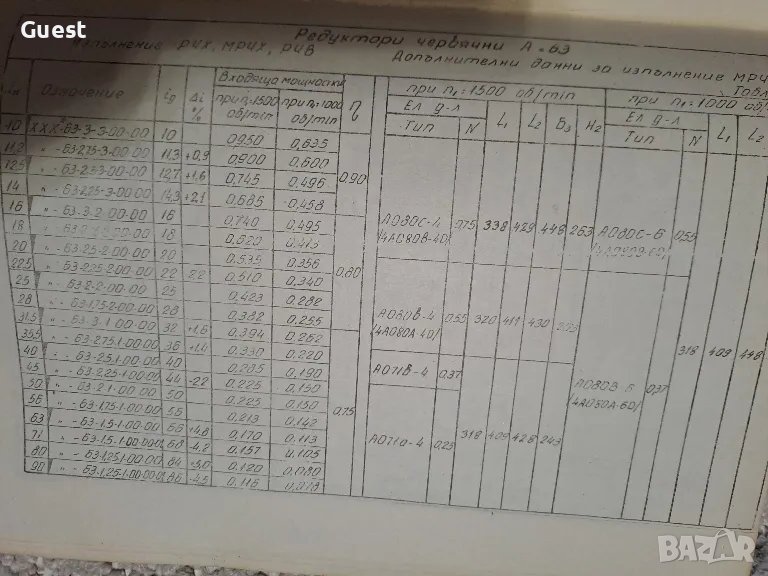 Guest
Редуктори червячни А-63
Изпълнение РЧХ, МРЧХ, РЧВ
Дополнителни данни за изпълнение МРЧ
Табл
Означение
iд
Δi %
Входяща мощност
при n1=1500 об/min
при n1=1000 об/min
η
при n1=1500 об/min
Ел д-л
Тип
N
L1
L2
B3
H2
при n1=1000 об/
Ел д-л
Тип
N
L1
L2
10 ХХХ-63-3-3-00-00 10 0950 0,635
11,2 " - 63-2,75-3-00-00 11,3 +0,9 0,900 0,600
12,5 " - 63-2,5-3-00-00 12,7 +1,6 0,745 0,496
14 " - 63-2,25-3-00-00 14,3 +2,1 0,685 0,458
0,90
16 " - 63-3-2-00-00 16 0,740 0,495
18 18
20 " - 63-2,5-2-00-00 20 0,535 0,356
22,5 " - 63-2,25-2-00-00 22 2,2 0,510 0,340
25 " - 63-2-2-00-00 25 0,423 0,282
28 " - 63-1,75-2-00-00 28 0,382 0,255
0,80
31,5 " - 63-3-1-00-00 32 +1,6 0,394 0,262
35,5 " - 63-2,75-1-00-00 36 +1,4 0,330 0,220
40 " - 63-2,5-1-00-00 40 0,190
45 " - 63-2,25-1-00-00 44 -2,2 0,225 0,150
50 " - 63-2-1-00-00 50 0,225 0,150
56 " - 63-1,75-1-00-00 56 0,213 0,142
63 " - 63-1,5-1-00-00 0,170 0,113
71 " - 63-1,5-1-00-00 68 -4,2 0,157 0,105
80 " - 63-1,25-1-00-00 84 0,120 0,080
90 " - 63-1,25-1-00-00 86 -4,5 0,116 0,078
0,75
АО80С-4 0,75 338 429 448 263 АО80С-6 0,55
/4АО80В-4D/
АО80В-4 0,55 320 411 430
/4АО80А-4D/
318 409 448
АО71В-4 0,37
АО80В-6 0,37
/4АО80А-6D/
АО71а-4 0,25 318 409 428 243
BAZAR